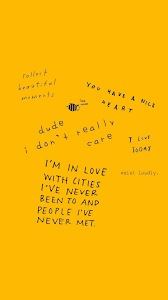 collect
beautiful
moments
YOU HAVE A NICE
HEART
dude
i don't really
care
I LIVE
TODAY
exist loudly.
I'M IN LOVE
WITH CITIES
I'VE NEVER
BEEN TO AND
PEOPLE I'VE
NEVER MET.